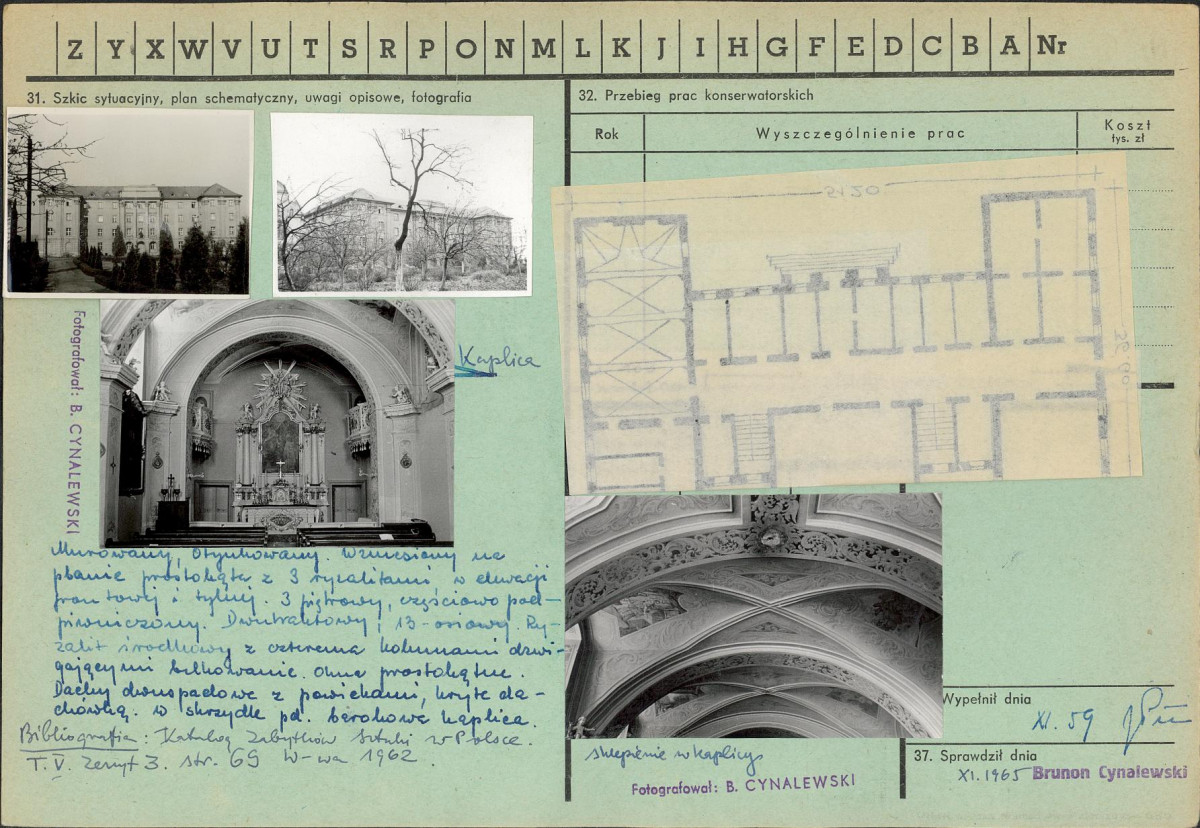 Z Y X W V U T S R P O N M L K J I H G F E D C B A Nr
31. Szkic sytuacyjny, plan schematyczny, uwagi opisowe, fotografia
Fotografował: B. CYNALEWSKI
Kaplica
Murowany, otynkowany. Wzniesiony na
planie prostokąta z 3 ryzalitami w elewacji
frontowej i tylnej. 3 piętrowy, częściowo pod-
piwniczony. Dwutraktowy, 13-osiowy. Ry-
zalit środkowy z czterema kolumnami dźwi-
gającymi belkowanie. Okna prostokątne.
Dachy dwuspadowe z powiekami, kryte da-
chówką. W skrzydle pd. barokowa kaplica.
Bibliografia: Katalog Zabytków Sztuki w Polsce.
T. V. Zeszyt 3. str. 69 W-wa 1962.
32. Przebieg prac konserwatorskich
Rok
Wyszczególnienie prac
Koszt
tys. zł
5120
sklepienie w kaplicy
Fotografował: B. CYNALEWSKI
Wypełnił dnia
XI. 59
37. Sprawdził dnia
XI. 1965 Brunon Cynalewski